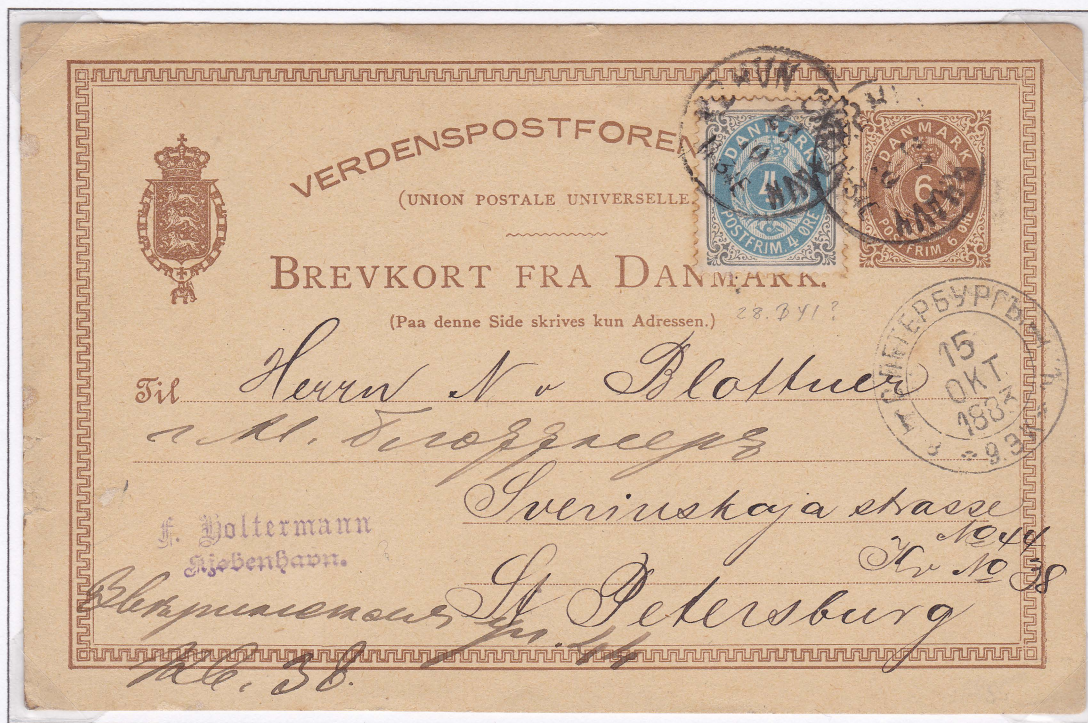 VERDENSPOSTFOREN
(UNION POSTALE UNIVERSELLE
BREVKORT FRA DANMARK.
(Paa denne Side skrives kun Adressen.)
DANMARK
4
POSTFRIM. 4 ØRE
DANMARK
6
POSTFRIM. 6 ØRE
28.
С.ПЕТЕРБУРГЪ
15
ОКТ.
1883
Til Herrn N v Blottner
г М.
Sverinskaja strasse
No 44
Kv No 38
St Petersburg
F. Woltermann
Kjøbenhavn.
ул. 44
кв. 38.